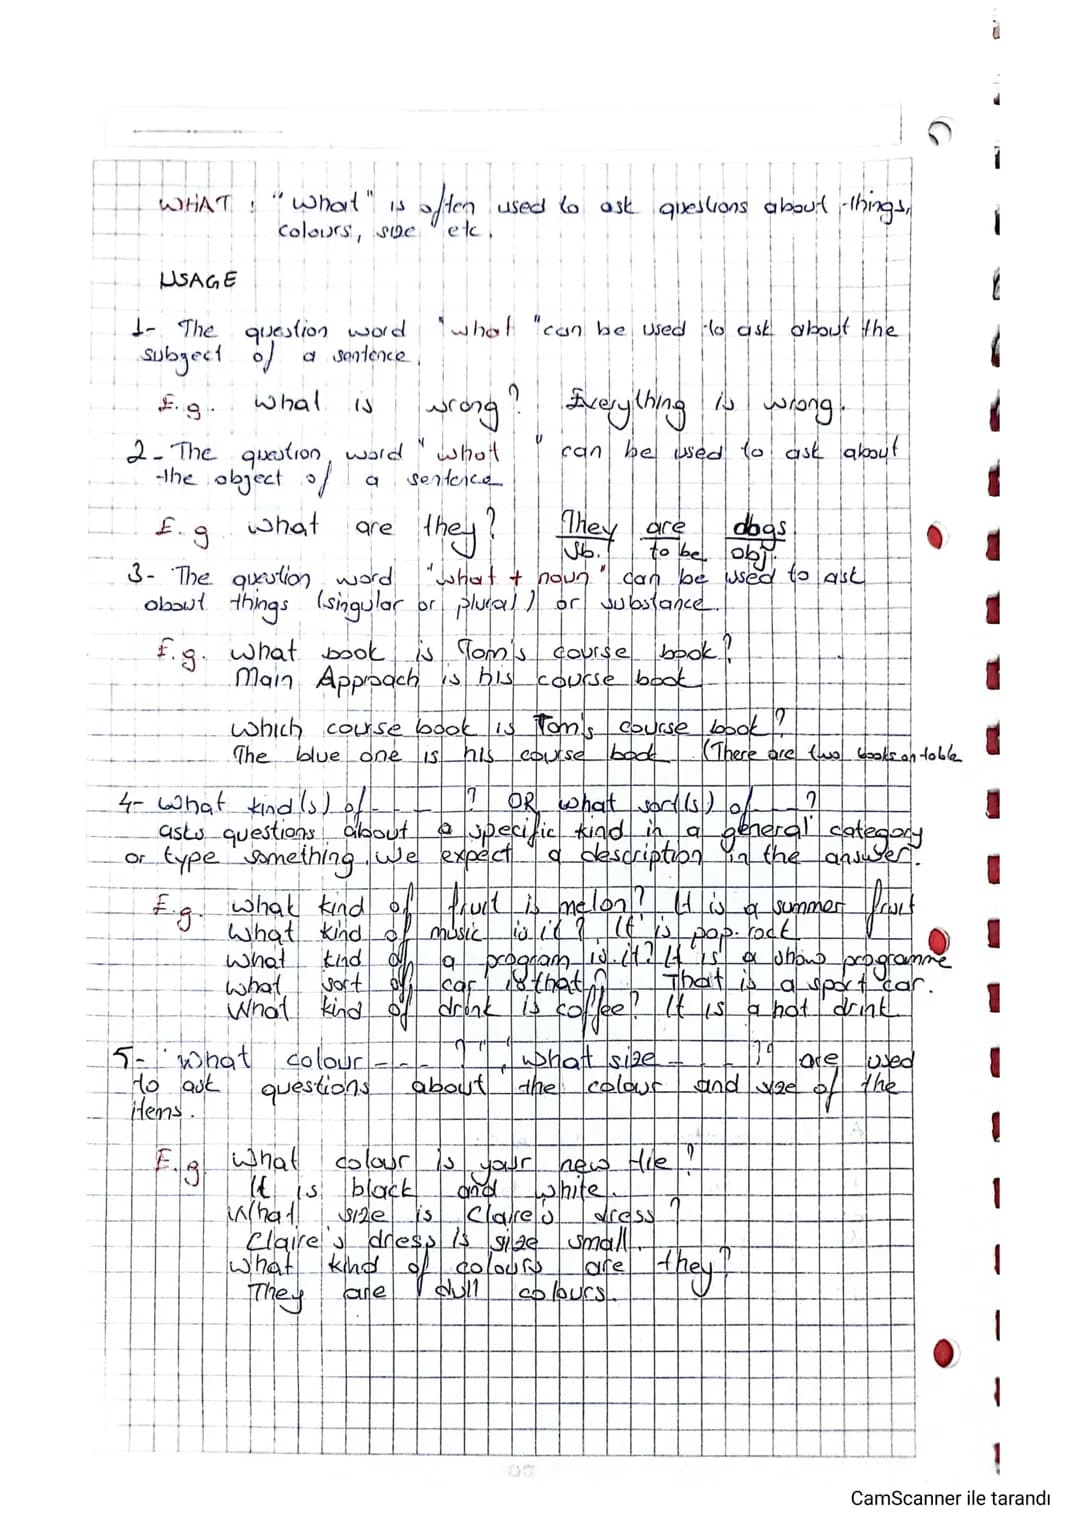 WHAT : "what" is often used to ask questions about things,
colours, size etc.
USAGE
1- The question word "what" can be used to ask about the
subject of a sentence.
E.g. what is wrong? Everything is wrong.
2- The question word "what" can be used to ask about
the object of a sentence
E.g what are they? They are dogs
Sb. to be obj.
3- The question word "what + noun" can be used to ask
about things (singular or plural) or substance.
E.g. what book is Tom's course book?
Main Approach is his course book
which course book is Tom's course book?
The blue one is his course book (There are two books on table
4- what kind(s) of - - - ? OR what sort(s) of - - ?
asks questions about a specific kind in a general category
or type something. We expect a description in the answer.
E.g. what kind of fruit is melon? It is a summer fruit
what kind of music is it? It is pop-rock
what kind of a program is it? It is a show programme
what sort of car is that? That is a sport car.
What kind of drink is coffee? It is a hot drink
5- "what colour - - - ?" , "what size - - ?" are used
to ask questions about the colour and size of the
items.
E.g. what colour is your new tie?
It is black and white.
what size is Claire's dress?
Claire's dress is size small.
what kind of colours are they?
They are dull colours.
CamScanner ile tarandı